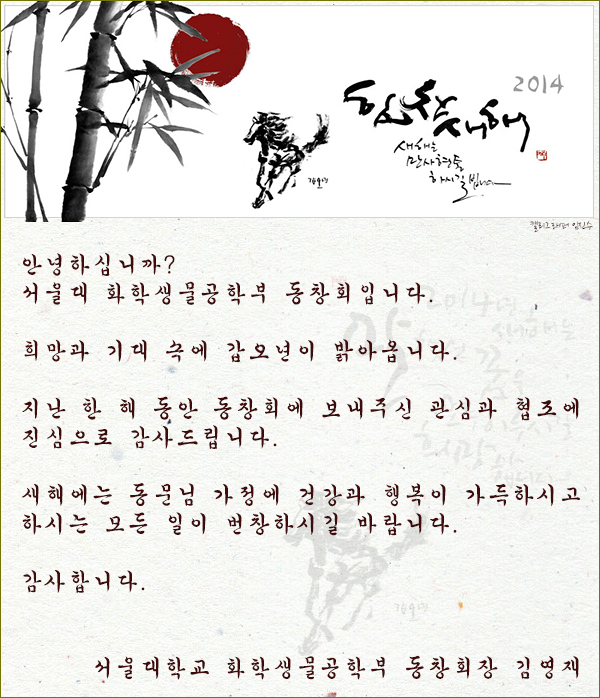 2014
힘찬 새해
새해는
만사형통
하시길 빕니다
갑오년
캘리그래퍼 임진수
안녕하십니까?
서울대 화학생물공학부 동창회입니다.
희망과 기대 속에 갑오년이 밝아옵니다.
지난 한 해 동안 동창회에 보내주신 관심과 협조에
진심으로 감사드립니다.
새해에는 동문님 가정에 건강과 행복이 가득하시고
하시는 모든 일이 번창하시길 바랍니다.
감사합니다.
2014년
새해에는
갑오년
서울대학교 화학생물공학부 동창회장 김영재